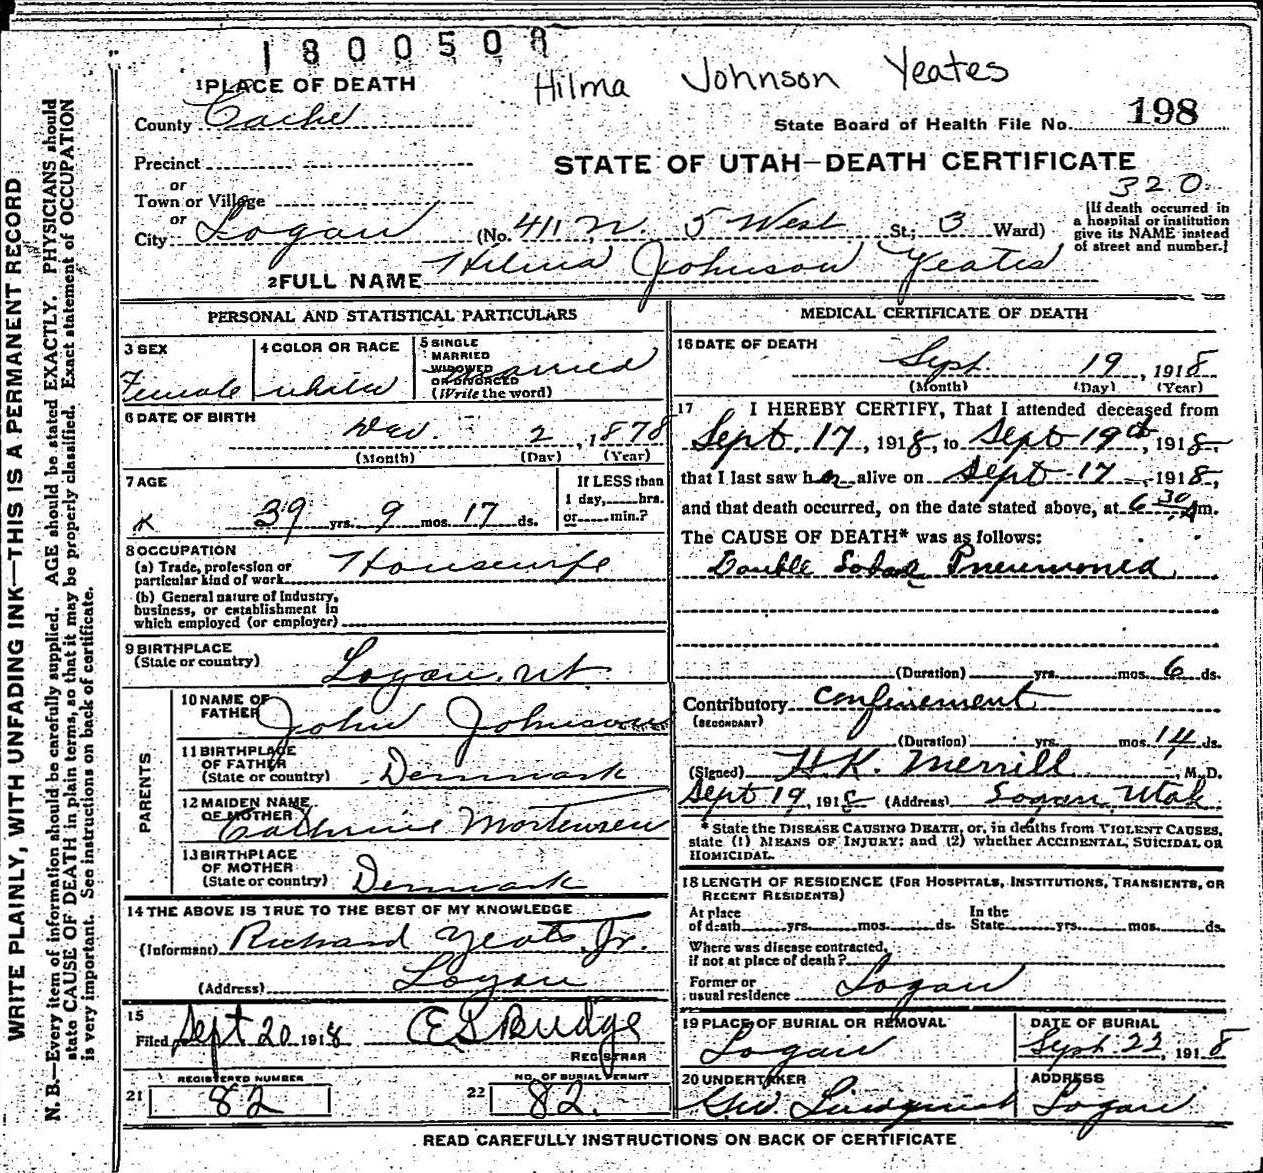 1800508
Hilma Johnson Yeates
1 PLACE OF DEATH
County Cache
State Board of Health File No. 198
Precinct
STATE OF UTAH—DEATH CERTIFICATE
or
Town or Village
320
or
City Logan (No. 411 N. 5 West St.; 3 Ward)
[If death occurred in a hospital or institution give its NAME instead of street and number.]
2 FULL NAME Hilma Johnson Yeates
PERSONAL AND STATISTICAL PARTICULARS
3 SEX Female
4 COLOR OR RACE white
5 SINGLE MARRIED WIDOWED OR DIVORCED (Write the word) Married
6 DATE OF BIRTH
Dec. 2, 1878
(Month) (Day) (Year)
7 AGE
39 yrs. 9 mos. 17 ds.
If LESS than 1 day, hrs. or min.?
8 OCCUPATION
(a) Trade, profession or particular kind of work Housewife
(b) General nature of industry, business, or establishment in which employed (or employer)
9 BIRTHPLACE
(State or country) Logan, Ut
PARENTS
10 NAME OF FATHER John Johnson
11 BIRTHPLACE OF FATHER (State or country) Denmark
12 MAIDEN NAME OF MOTHER Cathrine Mortensen
13 BIRTHPLACE OF MOTHER (State or country) Denmark
14 THE ABOVE IS TRUE TO THE BEST OF MY KNOWLEDGE
(Informant) Richard Yeates, Jr.
(Address) Logan
15
Filed Sept 20 1918 E S Budge
REGISTRAR
REGISTERED NUMBER
21 82
NO. OF BURIAL PERMIT
22 82.
MEDICAL CERTIFICATE OF DEATH
16 DATE OF DEATH
Sept. 19, 1918
(Month) (Day) (Year)
17 I HEREBY CERTIFY, That I attended deceased from
Sept. 17, 1918, to Sept 19th, 1918,
that I last saw her alive on Sept 17, 1918,
and that death occurred, on the date stated above, at 6 30 A m.
The CAUSE OF DEATH* was as follows:
Double Lobar Pneumonia
(Duration) yrs. mos. 6 ds.
Contributory confinement
(SECONDARY)
(Duration) yrs. mos. 14 ds.
(Signed) H.K. Merrill, M.D.
Sept 19, 1918 (Address) Logan, Utah.
*State the DISEASE CAUSING DEATH, or, in deaths from VIOLENT CAUSES, state (1) MEANS OF INJURY; and (2) whether ACCIDENTAL, SUICIDAL OR HOMICIDAL.
18 LENGTH OF RESIDENCE (FOR HOSPITALS, INSTITUTIONS, TRANSIENTS, OR RECENT RESIDENTS)
At place of death yrs. mos. ds. In the State yrs. mos. ds.
Where was disease contracted, if not at place of death?
Former or usual residence Logan
19 PLACE OF BURIAL OR REMOVAL Logan
DATE OF BURIAL Sept. 22, 1918
20 UNDERTAKER Geo. Lindquist
ADDRESS Logan
READ CAREFULLY INSTRUCTIONS ON BACK OF CERTIFICATE
WRITE PLAINLY, WITH UNFADING INK—THIS IS A PERMANENT RECORD
N. B.—Every item of information should be carefully supplied. AGE should be stated EXACTLY. PHYSICIANS should
state CAUSE OF DEATH in plain terms, so that it may be properly classified. Exact statement of OCCUPATION
is very important. See instructions on back of certificate.